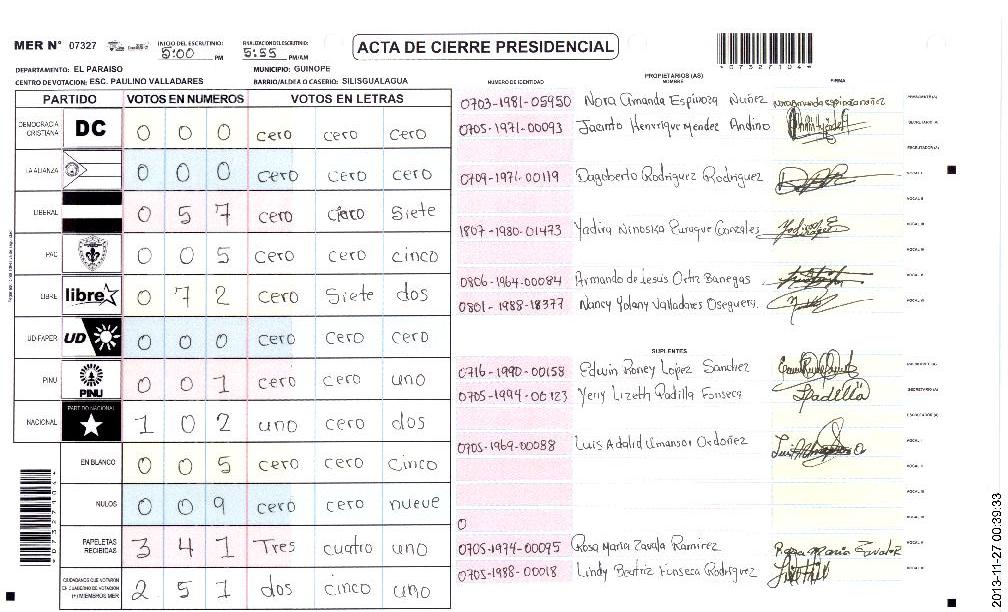 MER N° 07327 INICIO DEL ESCRUTINIO: 5:00 PM FINALIZACION DEL ESCRUTINIO: 5:55 PM/AM
ACTA DE CIERRE PRESIDENCIAL
DEPARTAMENTO: EL PARAISO MUNICIPIO: GUINOPE
CENTRO DE VOTACION: ESC. PAULINO VALLADARES BARRIO/ALDEA O CASERIO: SILISGUALAGUA
PARTIDO VOTOS EN NUMEROS VOTOS EN LETRAS
DEMOCRACIA CRISTIANA DC 0 0 0 cero cero cero
LA ALIANZA 0 0 0 cero cero cero
LIBERAL 0 5 7 cero cero Siete
PAC 0 0 5 cero cero cinco
LIBRE libre 0 7 2 cero Siete dos
UD-FAPER UD 0 0 0 cero cero cero
PINU PINU 0 0 1 cero cero uno
NACIONAL PARTIDO NACIONAL 1 0 2 uno cero dos
EN BLANCO 0 0 5 cero cero cinco
NULOS 0 0 9 cero cero nueve
PAPELETAS RECIBIDAS 3 4 1 Tres cuatro uno
CIUDADANOS QUE VOTARON EN CUADERNO DE VOTACION (+) MIEMBROS MER 2 5 1 dos cinco uno
NUMERO DE IDENTIDAD PROPIETARIOS (AS) NOMBRE FIRMA
0703-1981-05950 Nora Amanda Espinoza Nuñez
0705-1971-00093 Jacinto Henrrique Mendez Andino
0709-1971-00119 Dagoberto Rodriguez Rodriguez
1807-1980-01473 Yadira Ninoska
0806-1964-00084 Armando de Jesus Ortiz Banegas
0801-1988-18377 Nancy Yolany Valladares Oseguera
SUPLENTES
0716-1990-00158 Edwin Roney Lopez Sanchez
0705-1994-00123 Yeny Lizeth Padilla Fonseca
0705-1969-00088 Luis Adalid Almansor Ordoñez
0
0705-1974-00095 Rosa Maria Zavala Ramirez
0705-1988-00018 Lindy Beatriz Fonseca Rodriguez
2013-11-27 00:39:33